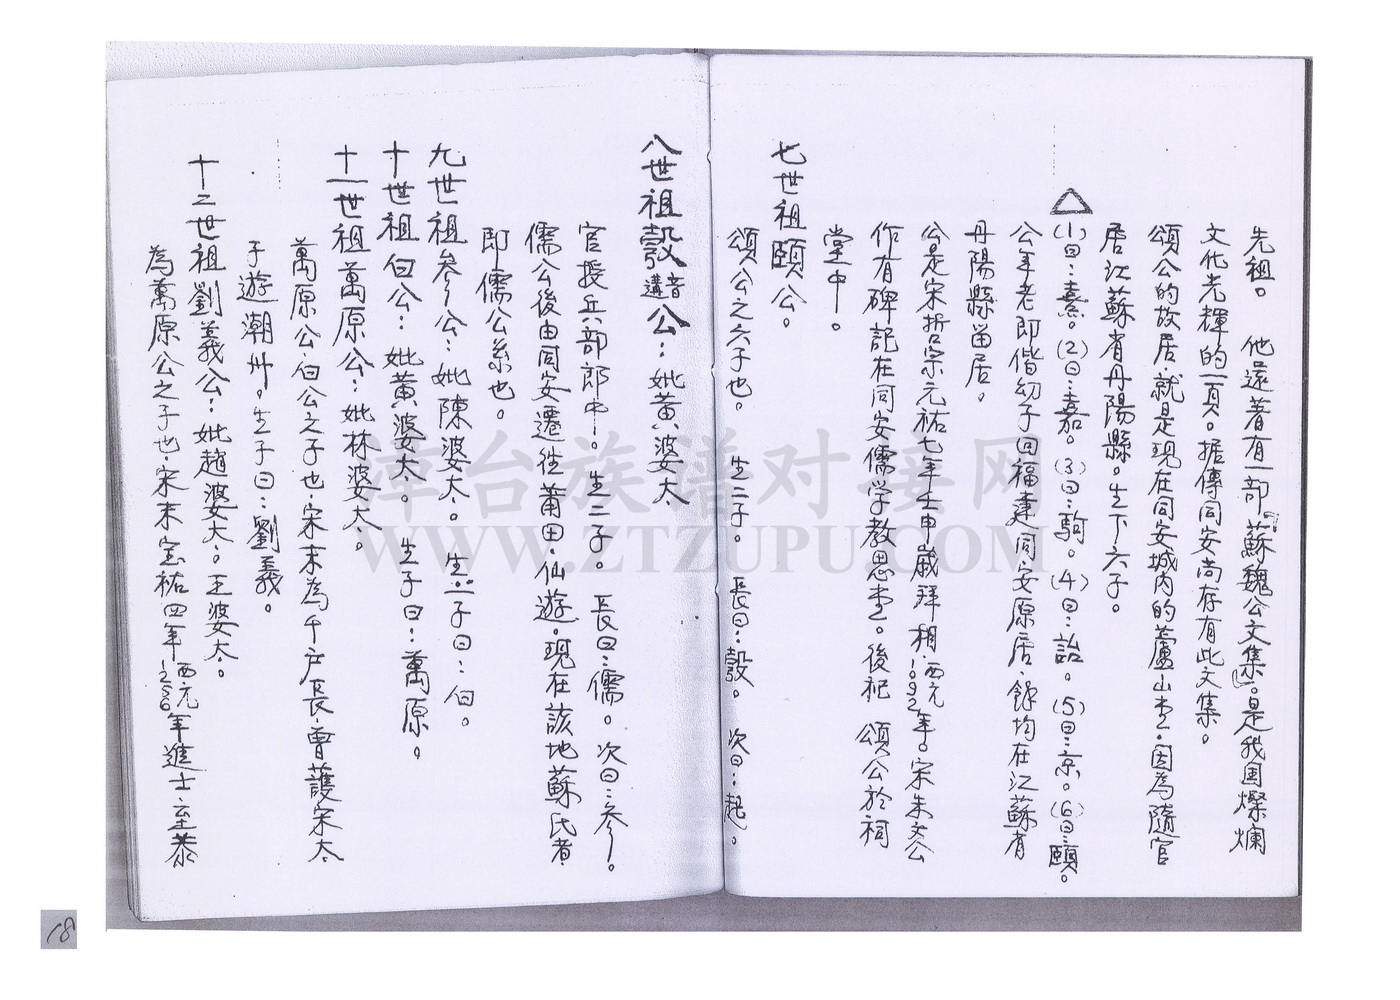 先祖。　他還著有一部「蘇魏公文集」。是我国燦爛
文化光輝的一頁。据傳同安尚存有此文集。
頌公的故居，就是現在同安城內的蘆山堂，因為隨官
居江蘇省丹陽縣。生下六子。
△
(1)曰：熹。(2)曰：嘉。(3)曰：駒。(4)曰：詒。(5)曰：京。(6)曰：頤。
公年老即偕幼子回福建同安原居，餘均在江蘇省
丹陽縣畄居。
公是宋哲宗元祐七年壬申歲拜相，西元1092年。宋朱文公
作有碑記在同安儒学教思堂。後祀　頌公於祠
堂中。
七世祖頤公。
頌公之六子也。　生二子。　長曰：瑴。　次曰：起。
八世祖瑴音遘公：妣黃婆太
官授兵部郎中。生二子。　長曰：儒。　次曰：參。
儒公後由同安遷往莆田，仙遊。現在該地蘇氏者
即儒公系也。
九世祖參公：妣陳婆太。　生一子曰：伯。
十世祖伯公：妣黃婆太。　生子曰：萬原。
十一世祖萬原公：妣林婆太。
萬原公，伯公之子也，宋末為千户長，曾護宋太
子遊潮州。生子曰：劉義。
十二世祖劉義公：妣趙婆太。王婆太。
為萬原公之子也，宋末宝祐四年西元1256年進士，至恭
潭台族譜对接网
WWW.ZTZUPU.COM
18